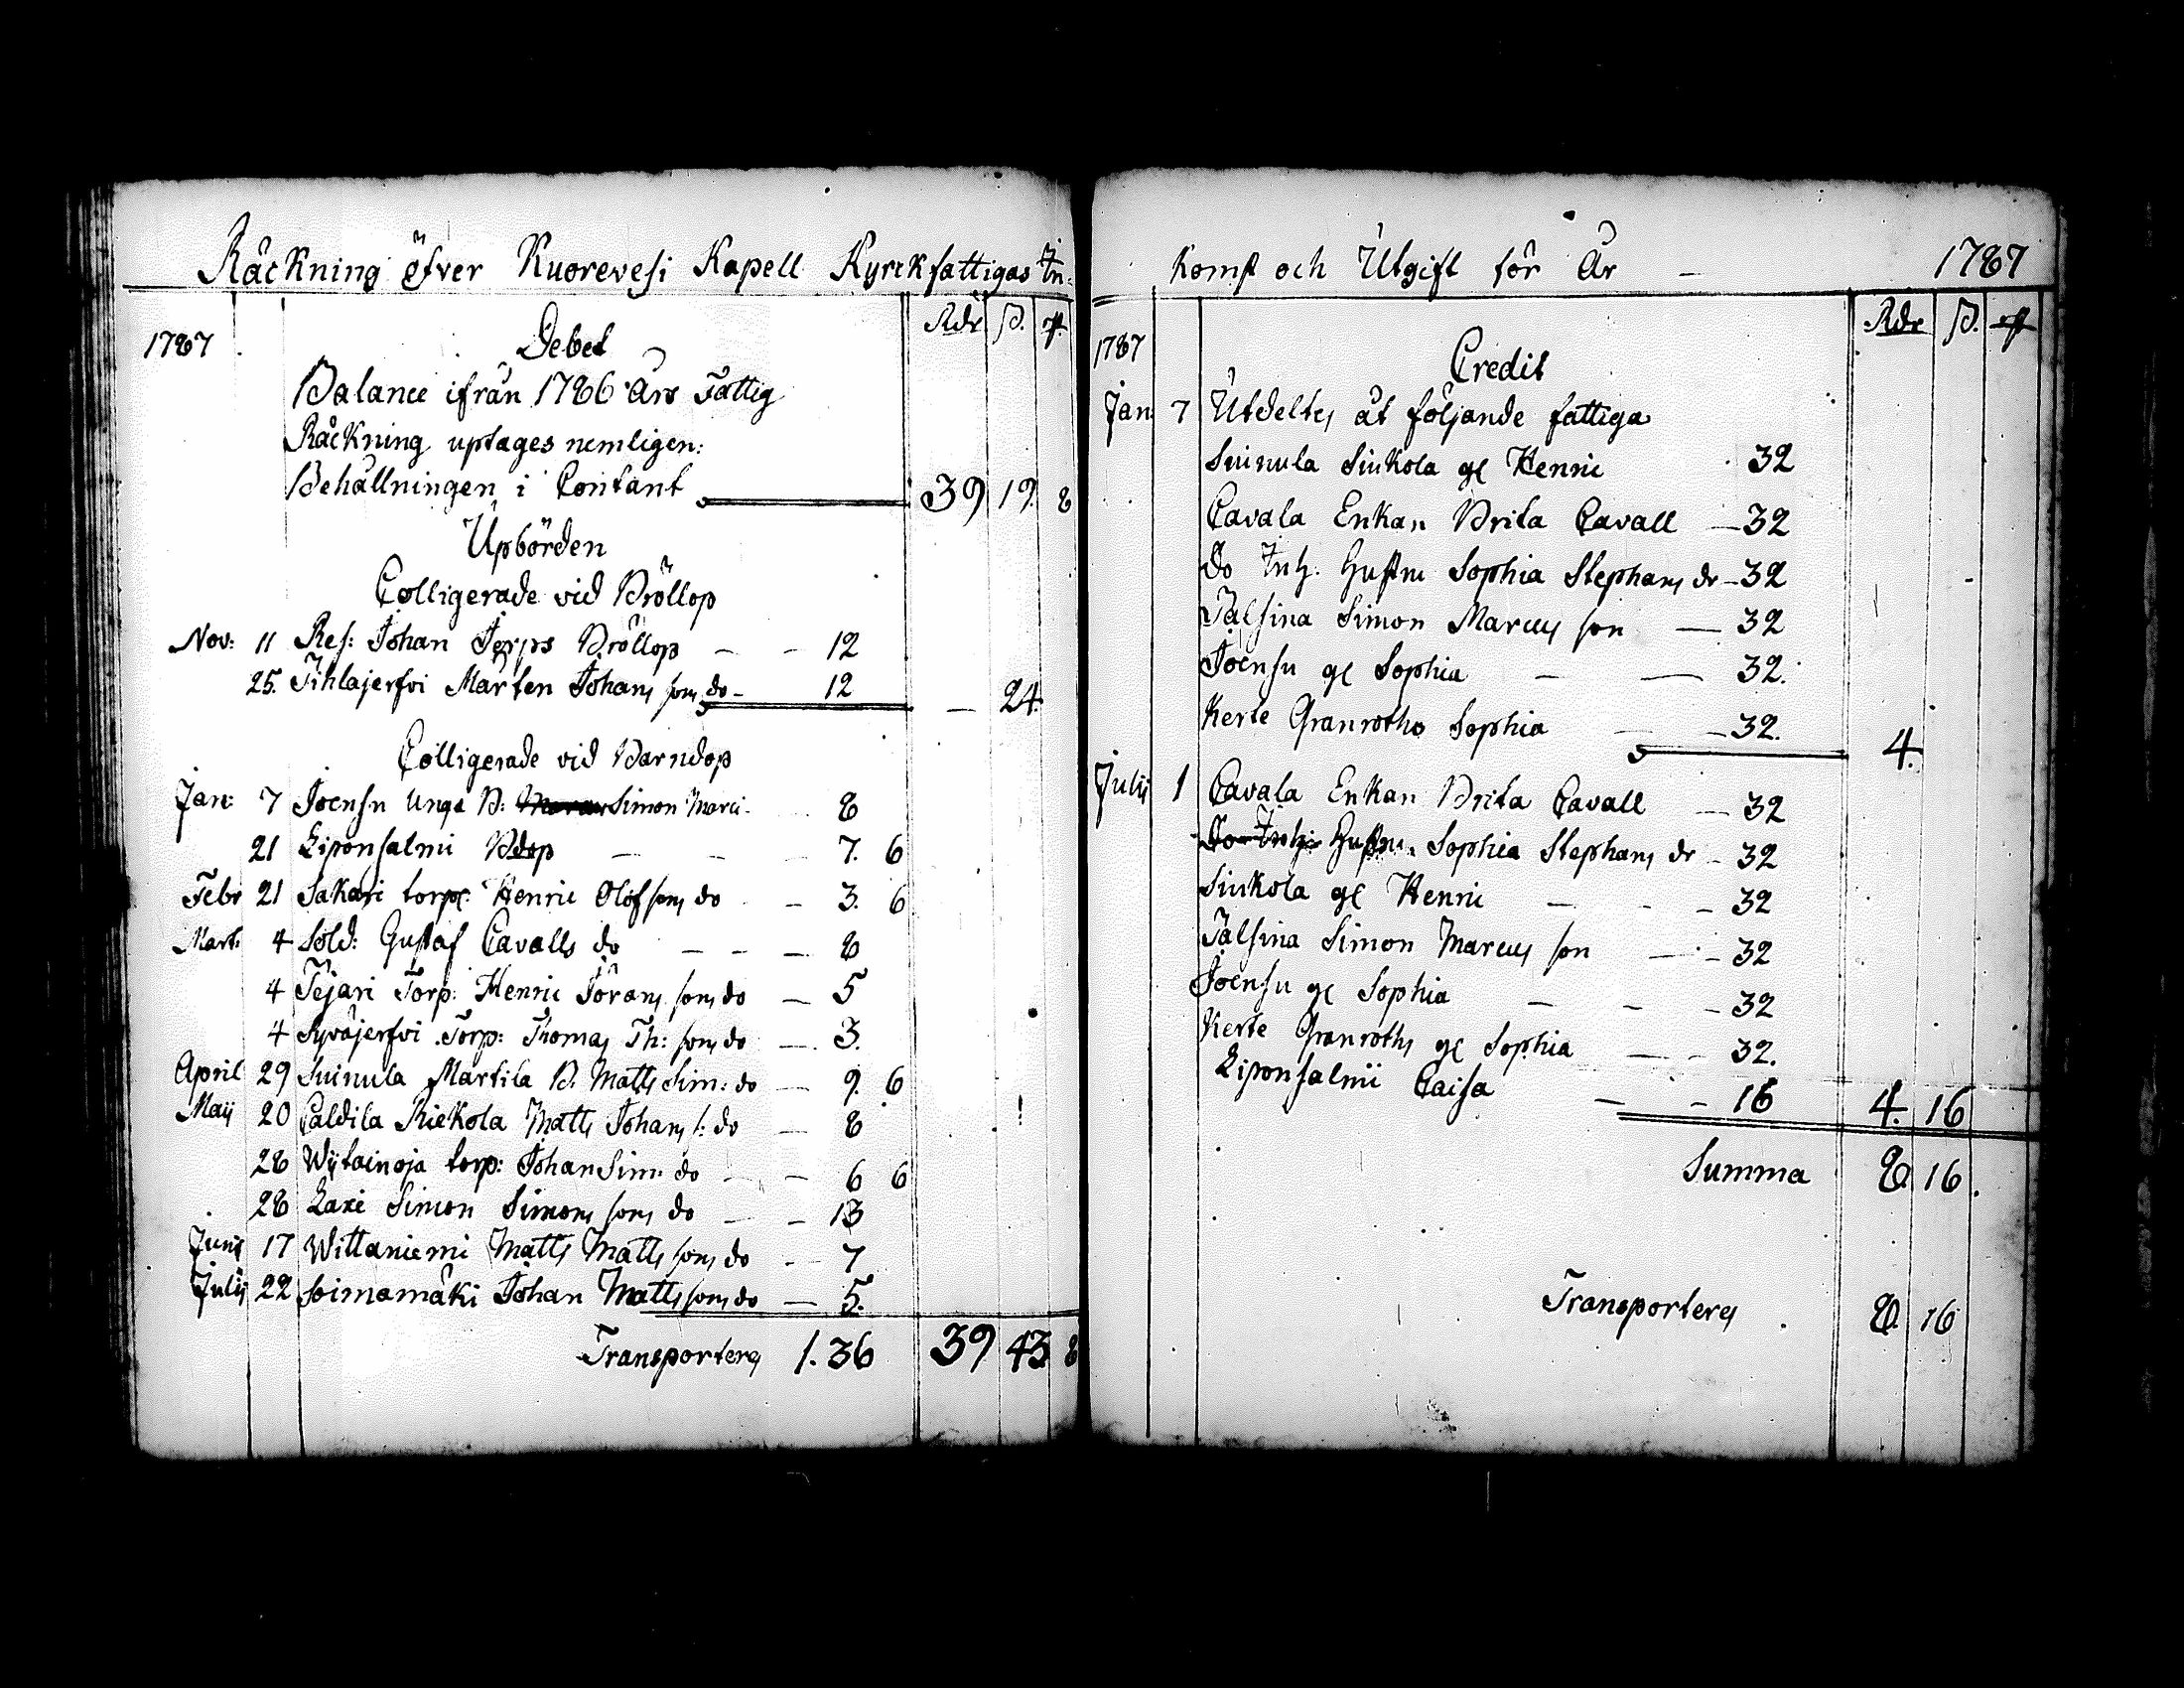 Räckning öfver Kuorevesi Kapell Kyrckfattigas In-
Rdr ß. rst.
1787 Debet
Balance ifrån 1786 Års Fattig
Räckning uptages nemligen:
Behållningen i Contant 39 19. 8
Upbörden
Colligerade vid Bröllop
Nov: 11 Res: Johan Jerps Bröllop - - 12
25. Pihlajerfvi Mårten Johans sons do - 12 — 24.
Colligerade vid Barndop
Jan: 7 Joensu Unga B: Simon Marci - 8
21 Liponsalmi Bdop - - - 7. 6
Febr 21 Sakari torp: Henric Olofsons do - 3. 6
Mart: 4 Sold: Gustaf Cavalls do - - - 8
4 Tejari Torp: Henric Jörans sons do - 5
4 Syväjerfvi Torp: Thomas Th: sons do - 3.
April 29 Suinula Martila B. Matts Sim: do - 9. 6
Maij 20 Caldila Riekola Matts Johans s: do - 8
28 Wijtainoja torp: Johan Sim: do - - 6 6
28 Laxi Simon Simons sons do - - 13
Junij 17 Wittaniemi Matts Matts sons do - 7
Julij 22 Soimamäki Johan Matts sons do - 5.
Transporteres 1. 36 39 43 8
komst och Utgift för År - 1787
Rdr ß. rst
1787 Credit
Jan: 7 Utdeltes åt följande fattiga
Suinula Siukola gl Henric 32
Cavala Enkan Brita Cavall - 32
Do Inh. Hustru Sophia Stephans dr - 32
Jälsina Simon Marcus son - 32
Joensu gl Sophia - - 32.
Kerte Granroths Sophia - - 32. 4.
Julij 1 Cavala Enkan Brita Cavall - 32
Do Inh: Hustru Sophia Stephans dr - 32
Siukola gl Henric - - - 32
Jälsina Simon Marcus son - - 32
Joensu gl Sophia - - - 32
Kerte Granroths gl Sophia - - 32.
Liponsalmi Caisa - - 16 4. 16
Summa 8. 16.
Transporteres 8. 16